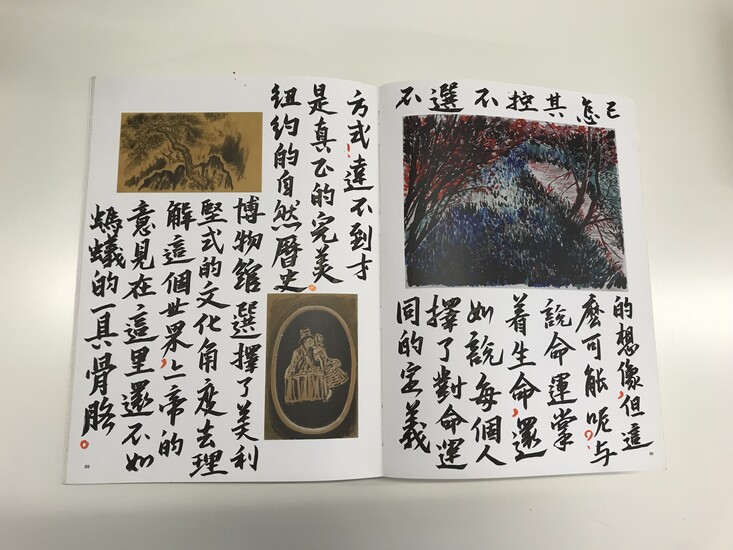 己的想像,但這
怎麼可能呢?与
其說命運掌
控着生命,還
不如說每個人
選擇了對命運
不同的定義
方式!達不到才
是真正的完美。
紐約的自然曆史
博物館選擇了美利
堅式的文化角度去理
解這個世界,上帝的
意見在這里還不如
螞蟻的一具骨骼。